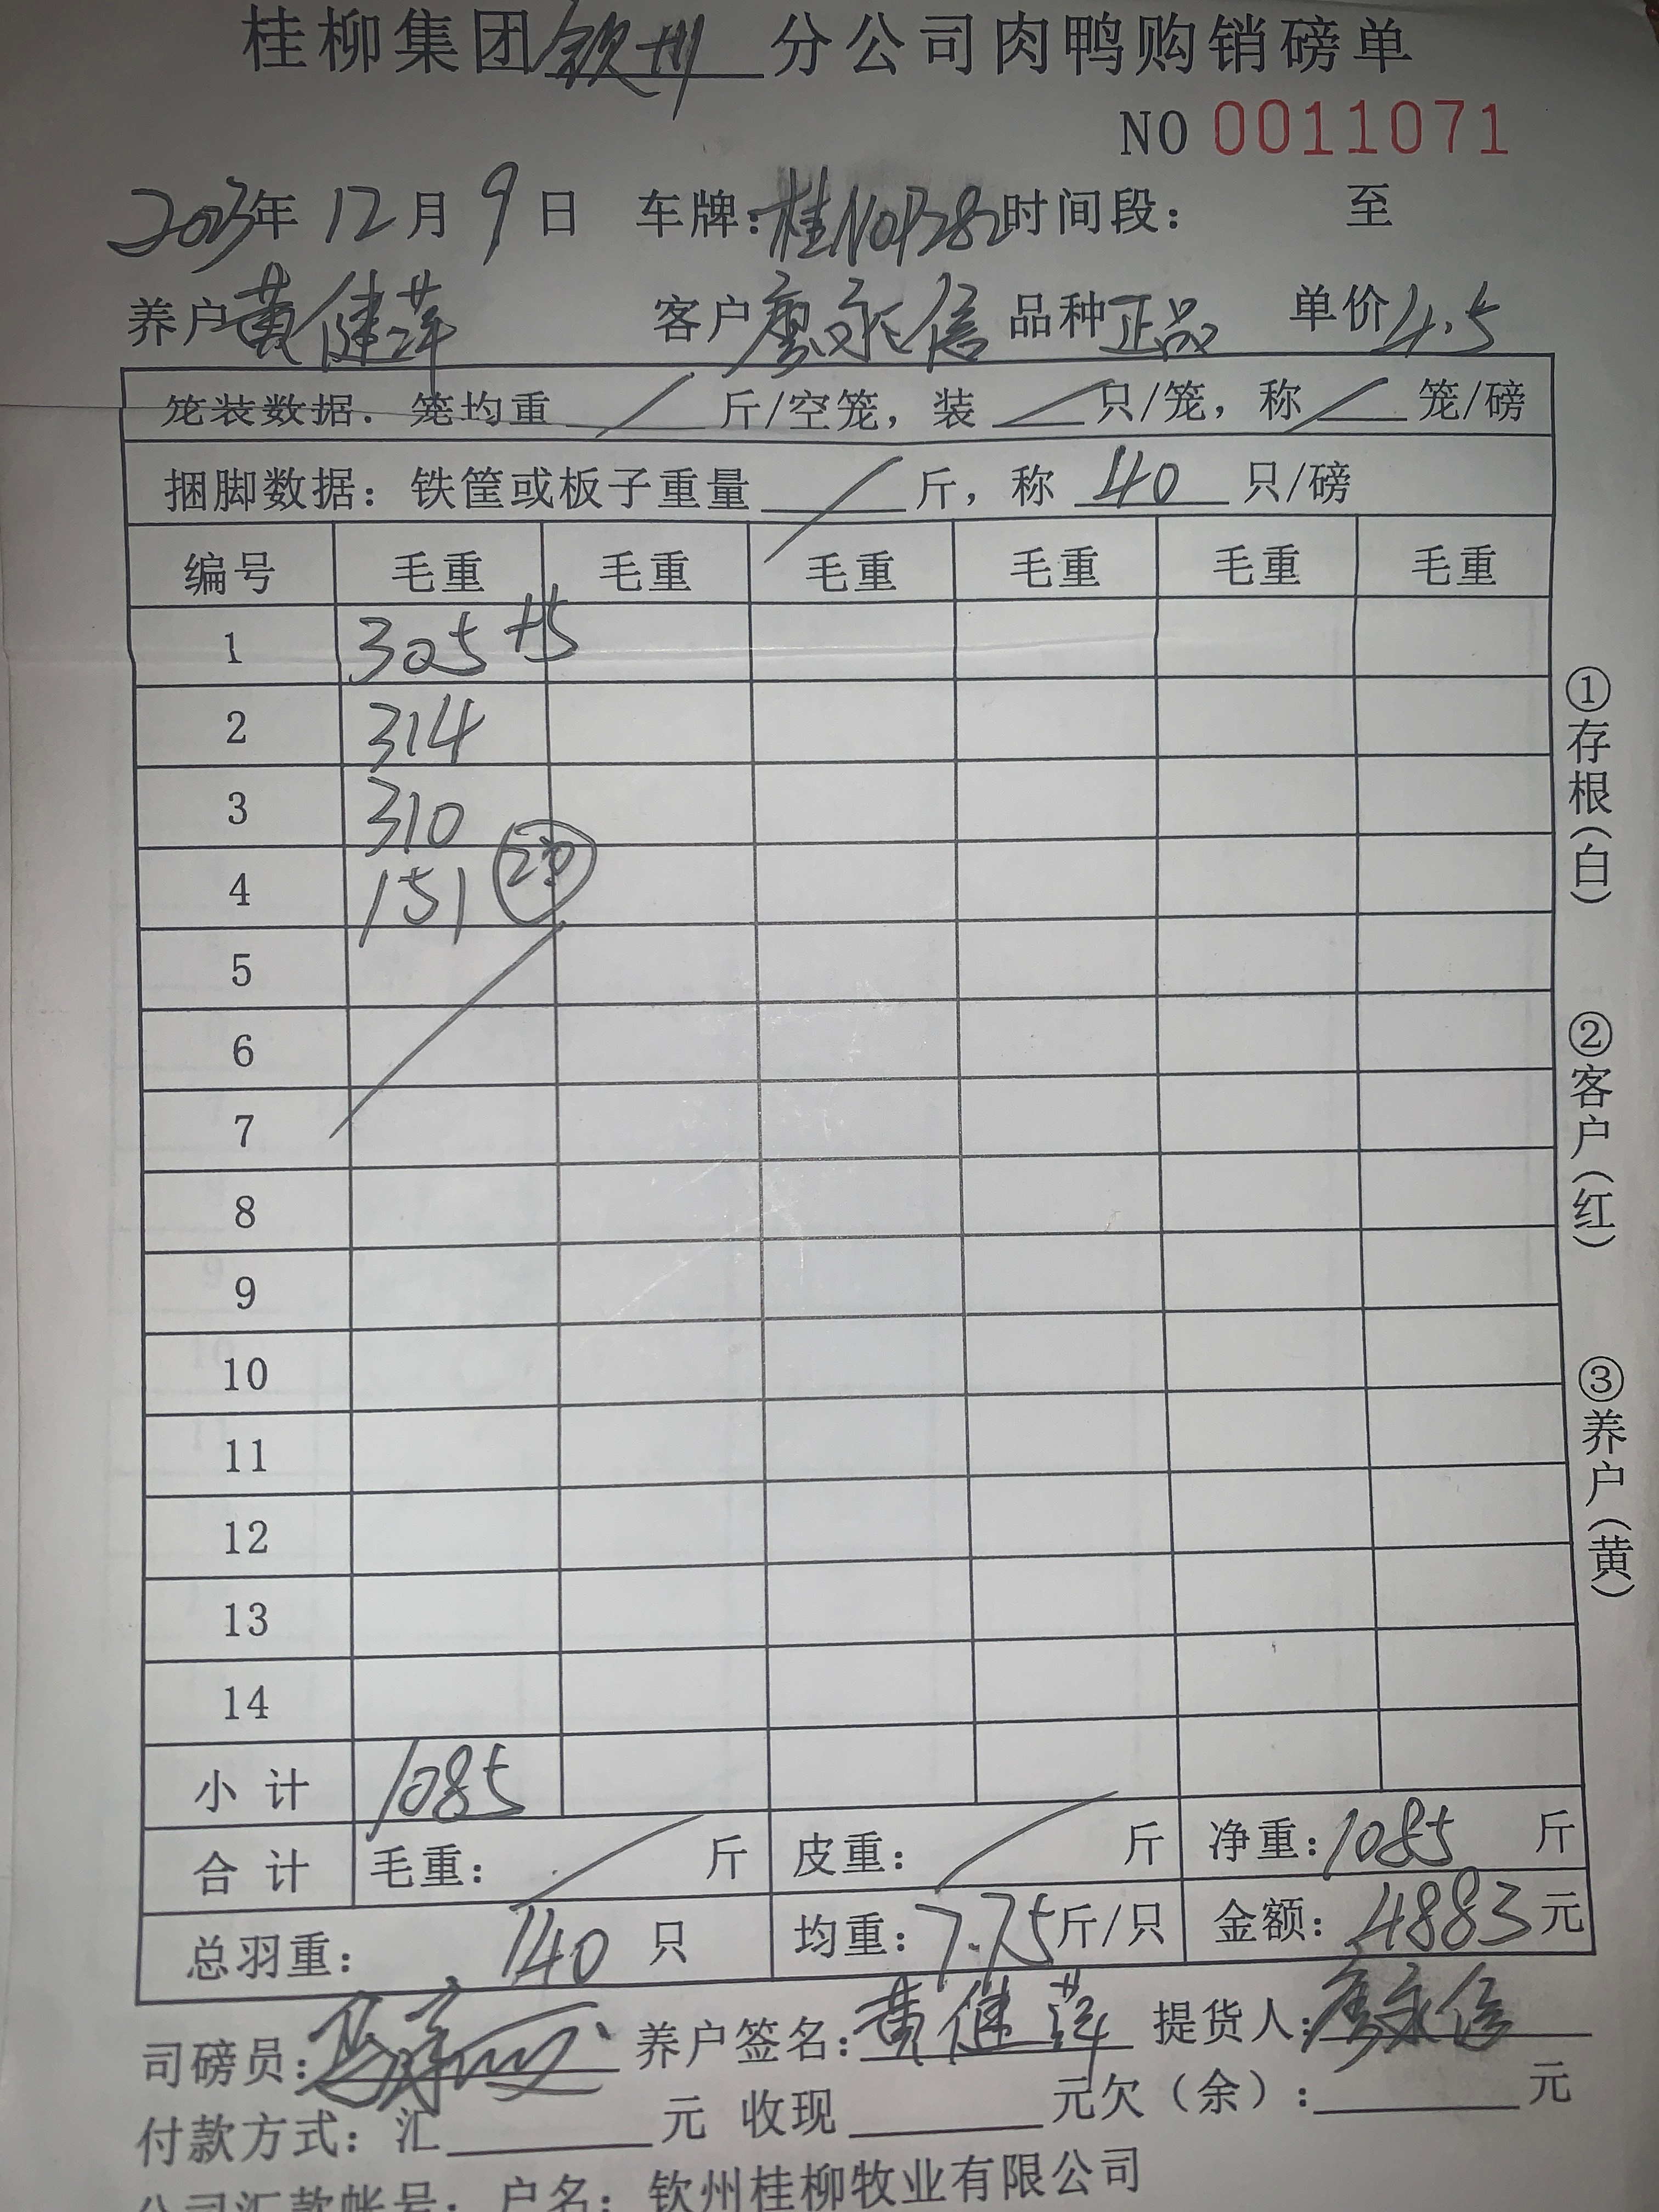 桂柳集团钦州分公司肉鸭购销磅单
NO 0011071
2023年 12月 9日 车牌:桂N0P282时间段: 至
养户黄健萍 客户廖永信 品种正品 单价4.5
笼装数据. 笼均重 斤/空笼, 装 只/笼, 称 笼/磅
捆脚数据: 铁筐或板子重量 斤, 称 40 只/磅
编号 毛重 毛重 毛重 毛重 毛重 毛重
1 305 +5
2 314
3 310
4 151 20
5
6
7
8
9
10
11
12
13
14
小计 1085
合计 毛重: 斤 皮重: 斤 净重:1085 斤
总羽重: 140 只 均重:7.75斤/只 金额: 4883元
司磅员: 养户签名:黄健萍 提货人:廖永信
付款方式: 汇 元 收现 元欠(余): 元
公司汇款帐号: 户名: 钦州桂柳牧业有限公司
①存根(白)
②客户(红)
③养户(黄)